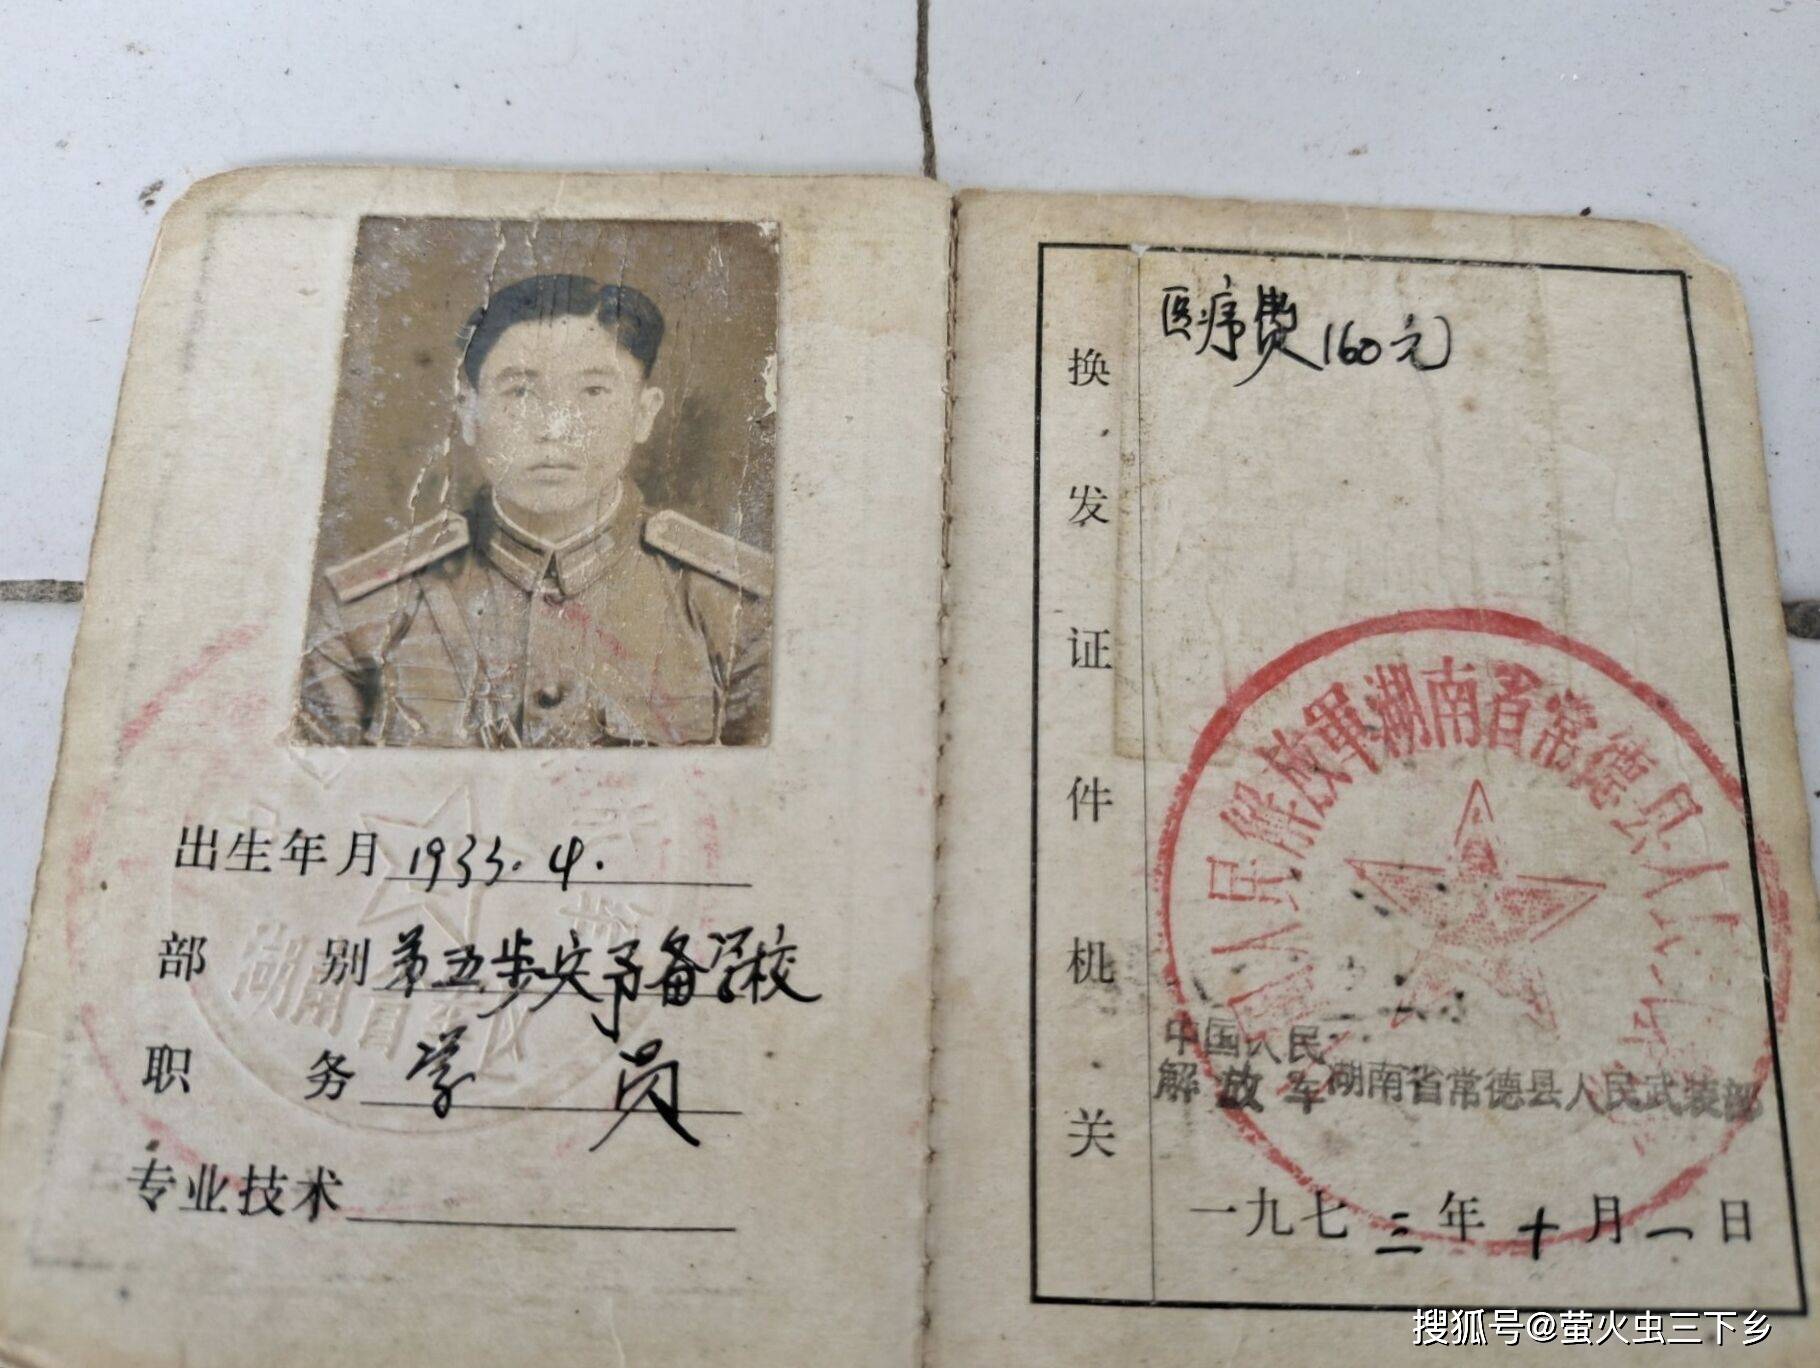 出生年月 1933.4.
部别 第五步兵予备学校
职务 学员
专业技术
湖南省军区
换发证件机关
医疗费160元
中国人民解放军湖南省常德县人民武装部
中国人民
解放军湖南省常德县人民武装部
一九七三年十月一日
搜狐号@萤火虫三下乡